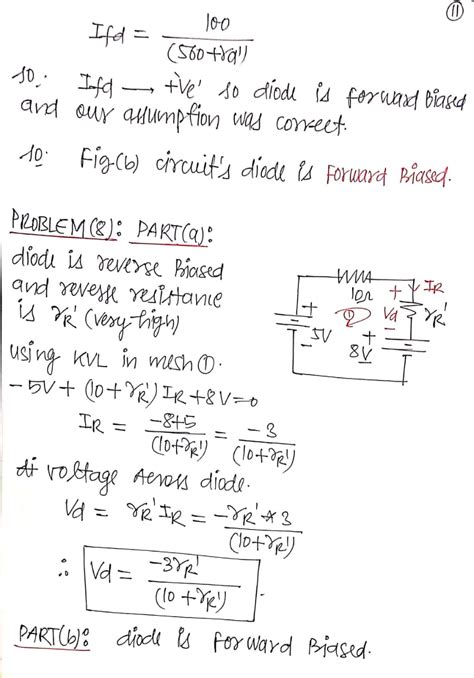 11
Ifd = 100 / (500+rd')
so: Ifd → +ve' so diode is forward Biased
and our assumption was correct.
so: Fig(b) circuit's diode is Forward Biased.
PROBLEM(8): PART(a):
diode is reverse Biased
and reverse resistance
is rR' (very high)
10Ω
+ IR
+ 5V -
1
Vd
rR'
+ 8V -
using KVL in mesh ①.
-5V + (10+rR') IR + 8V = 0
IR = -8+5 / (10+rR') = -3 / (10+rR')
voltage Across diode.
Vd = rR' IR = -rR' * 3 / (10+rR')
∴ Vd = -3rR' / (10+rR').
PART(b): diode is forward Biased.